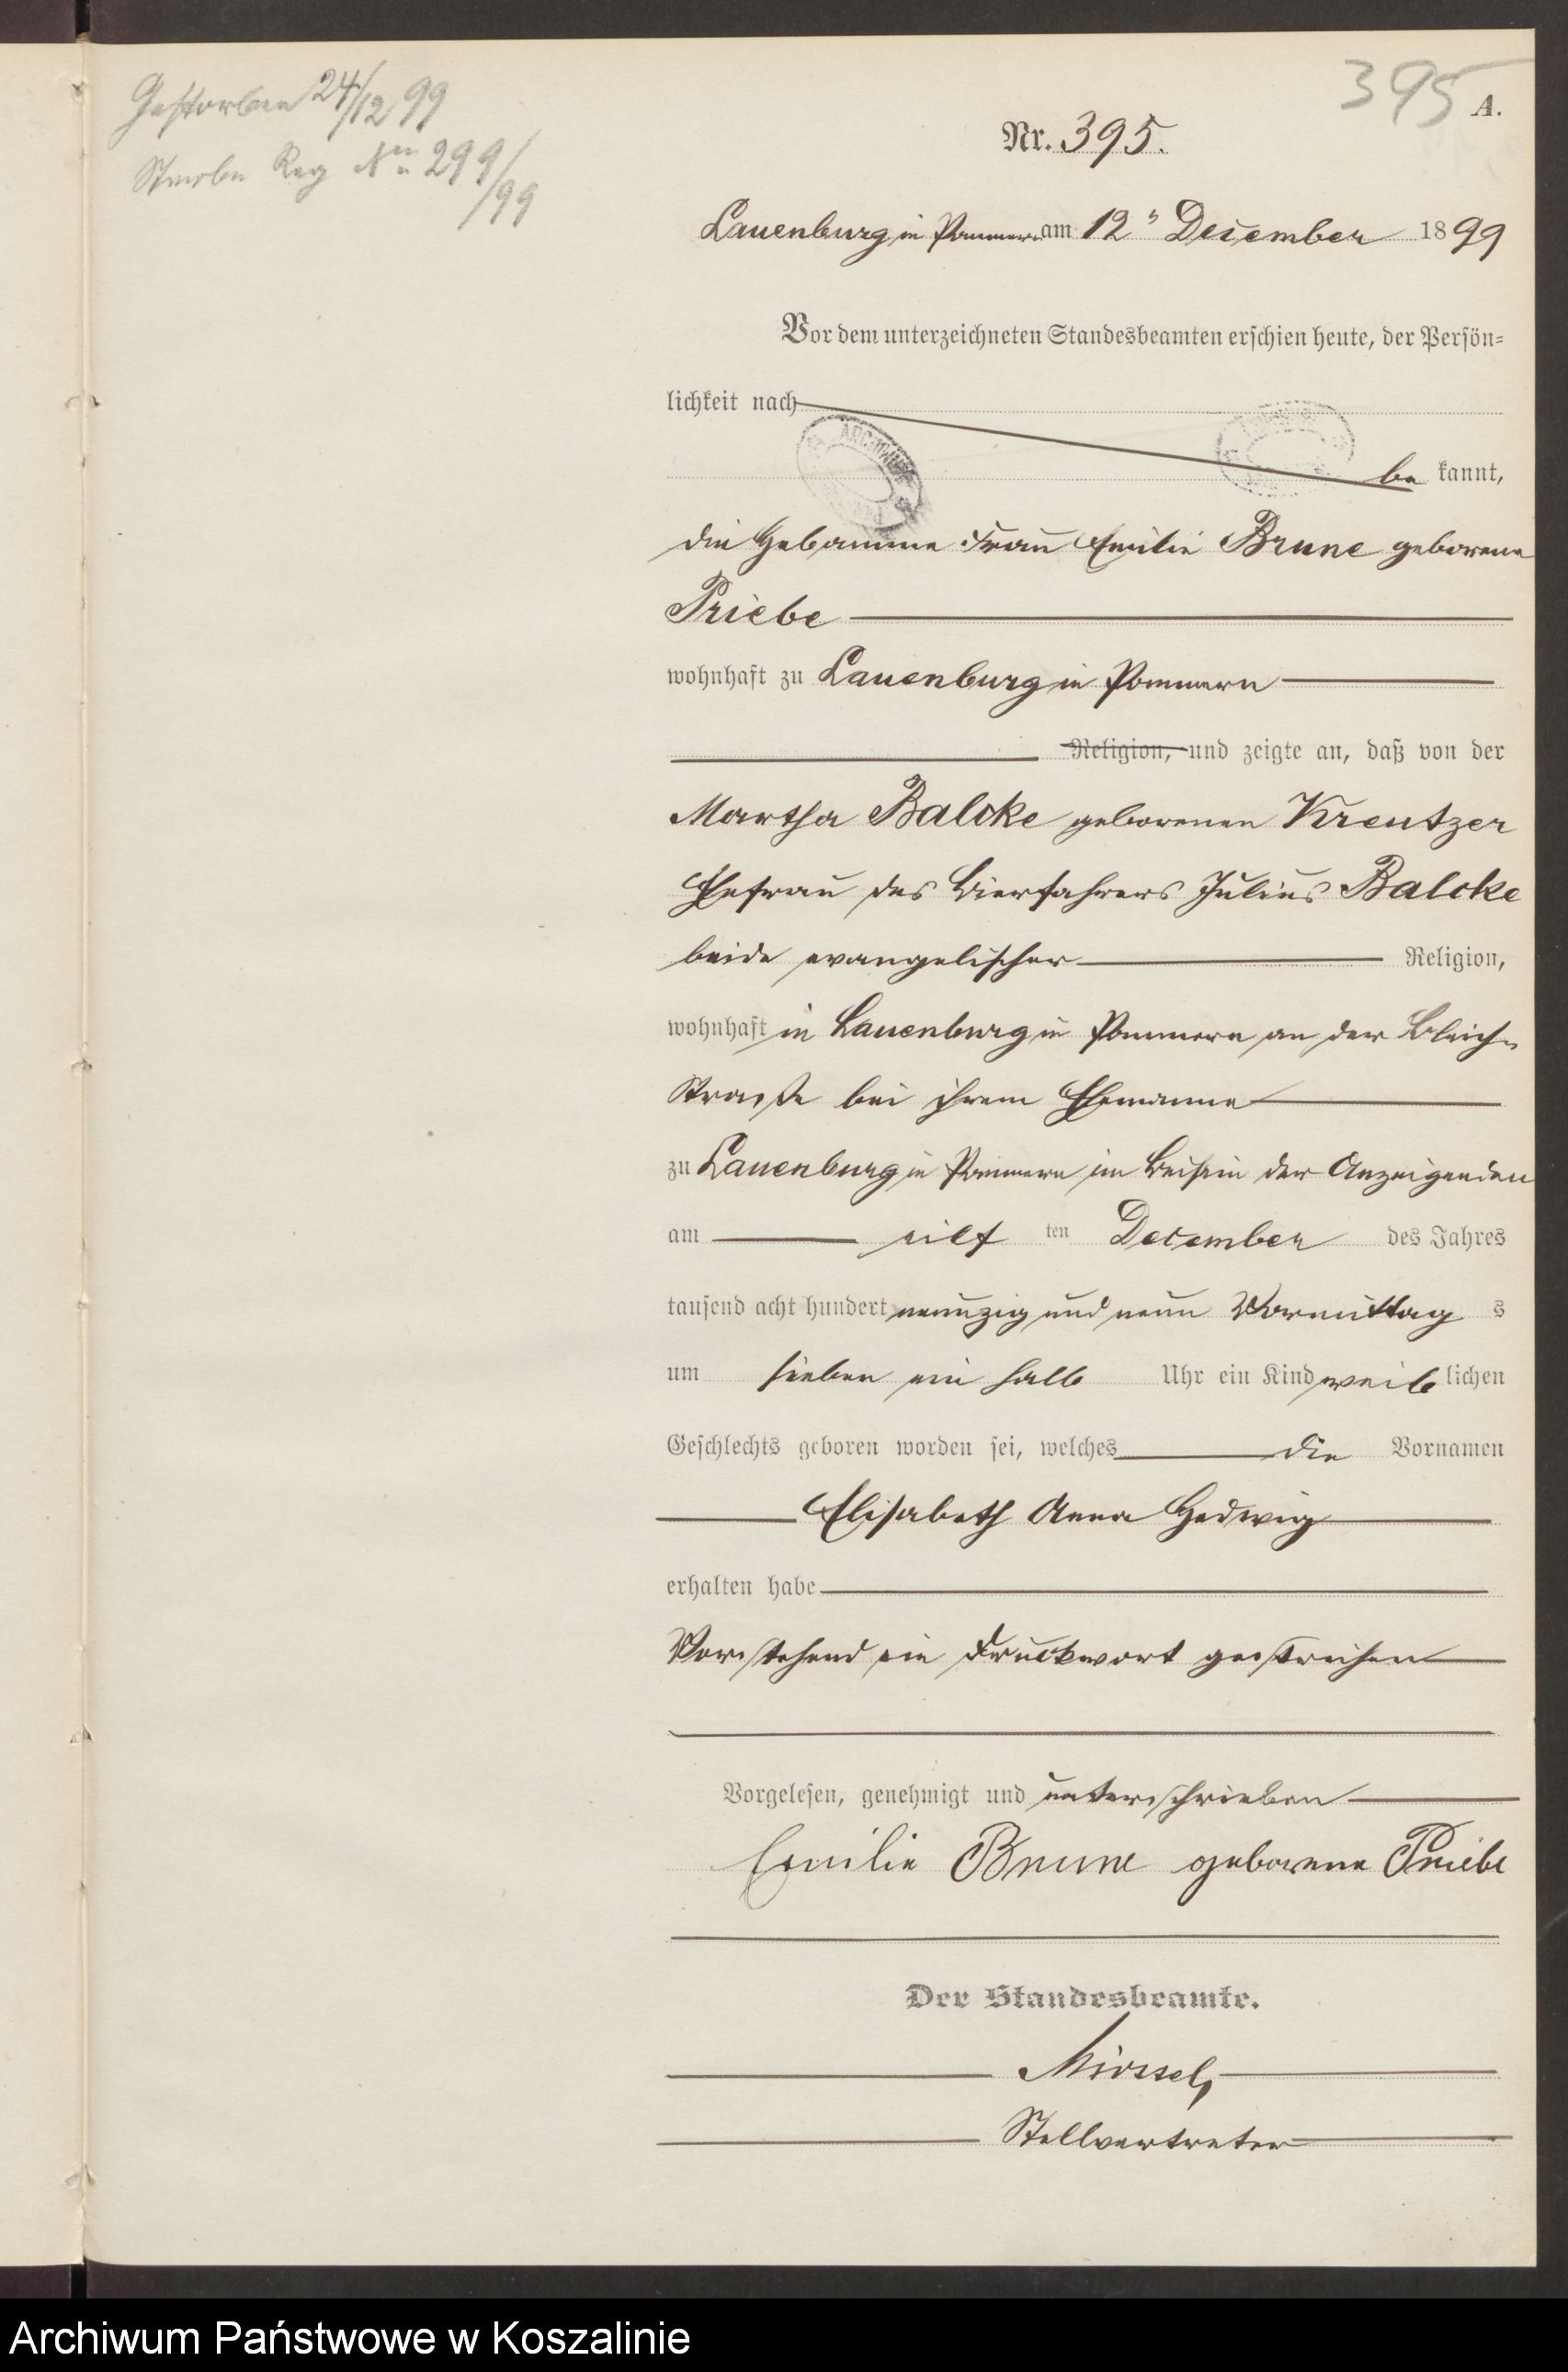 Gestorben 24/12 99
Sterbe Reg Nr 299/99
395
A.
Nr. 395.
Lauenburg in Pommern am 12ⁿ December 1899
Vor dem unterzeichneten Standesbeamten erschien heute, der Persön=
lichkeit nach
be kannt,
die Hebamme Frau Emilie Brune geborene
Priebe
wohnhaft zu Lauenburg in Pommern
Religion, und zeigte an, daß von der
Martha Balcke geborenen Kreutzer
Ehefrau des Bierfahrers Julius Balcke
beide evangelischer Religion,
wohnhaft in Lauenburg in Pommern an der Bleich=
Straße bei ihrem Ehemanne
zu Lauenburg in Pommern im Beisein der Anzeigenden
am eilf ten December des Jahres
tausend acht hundert neunzig und neun Vormittag s
um sieben ein halb Uhr ein Kind weib lichen
Geschlechts geboren worden sei, welches die Vornamen
Elisabeth Anna Hedwig
erhalten habe
Vorstehend ein Druckwort gestrichen
Vorgelesen, genehmigt und unterschrieben
Emilie Brune geborene Priebe
Der Standesbeamte.
Stellvertreter
Archiwum Państwowe w Koszalinie